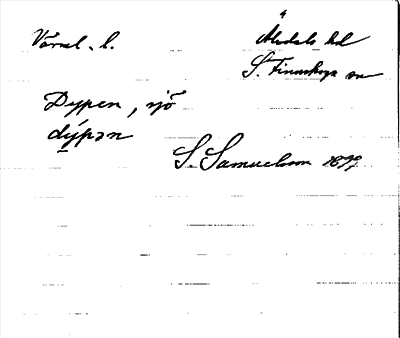 Värml. l.
Älvdals hd
S. Finnskoga sn
Dypen, sjö
dýpən
S. Samuelsson 1899